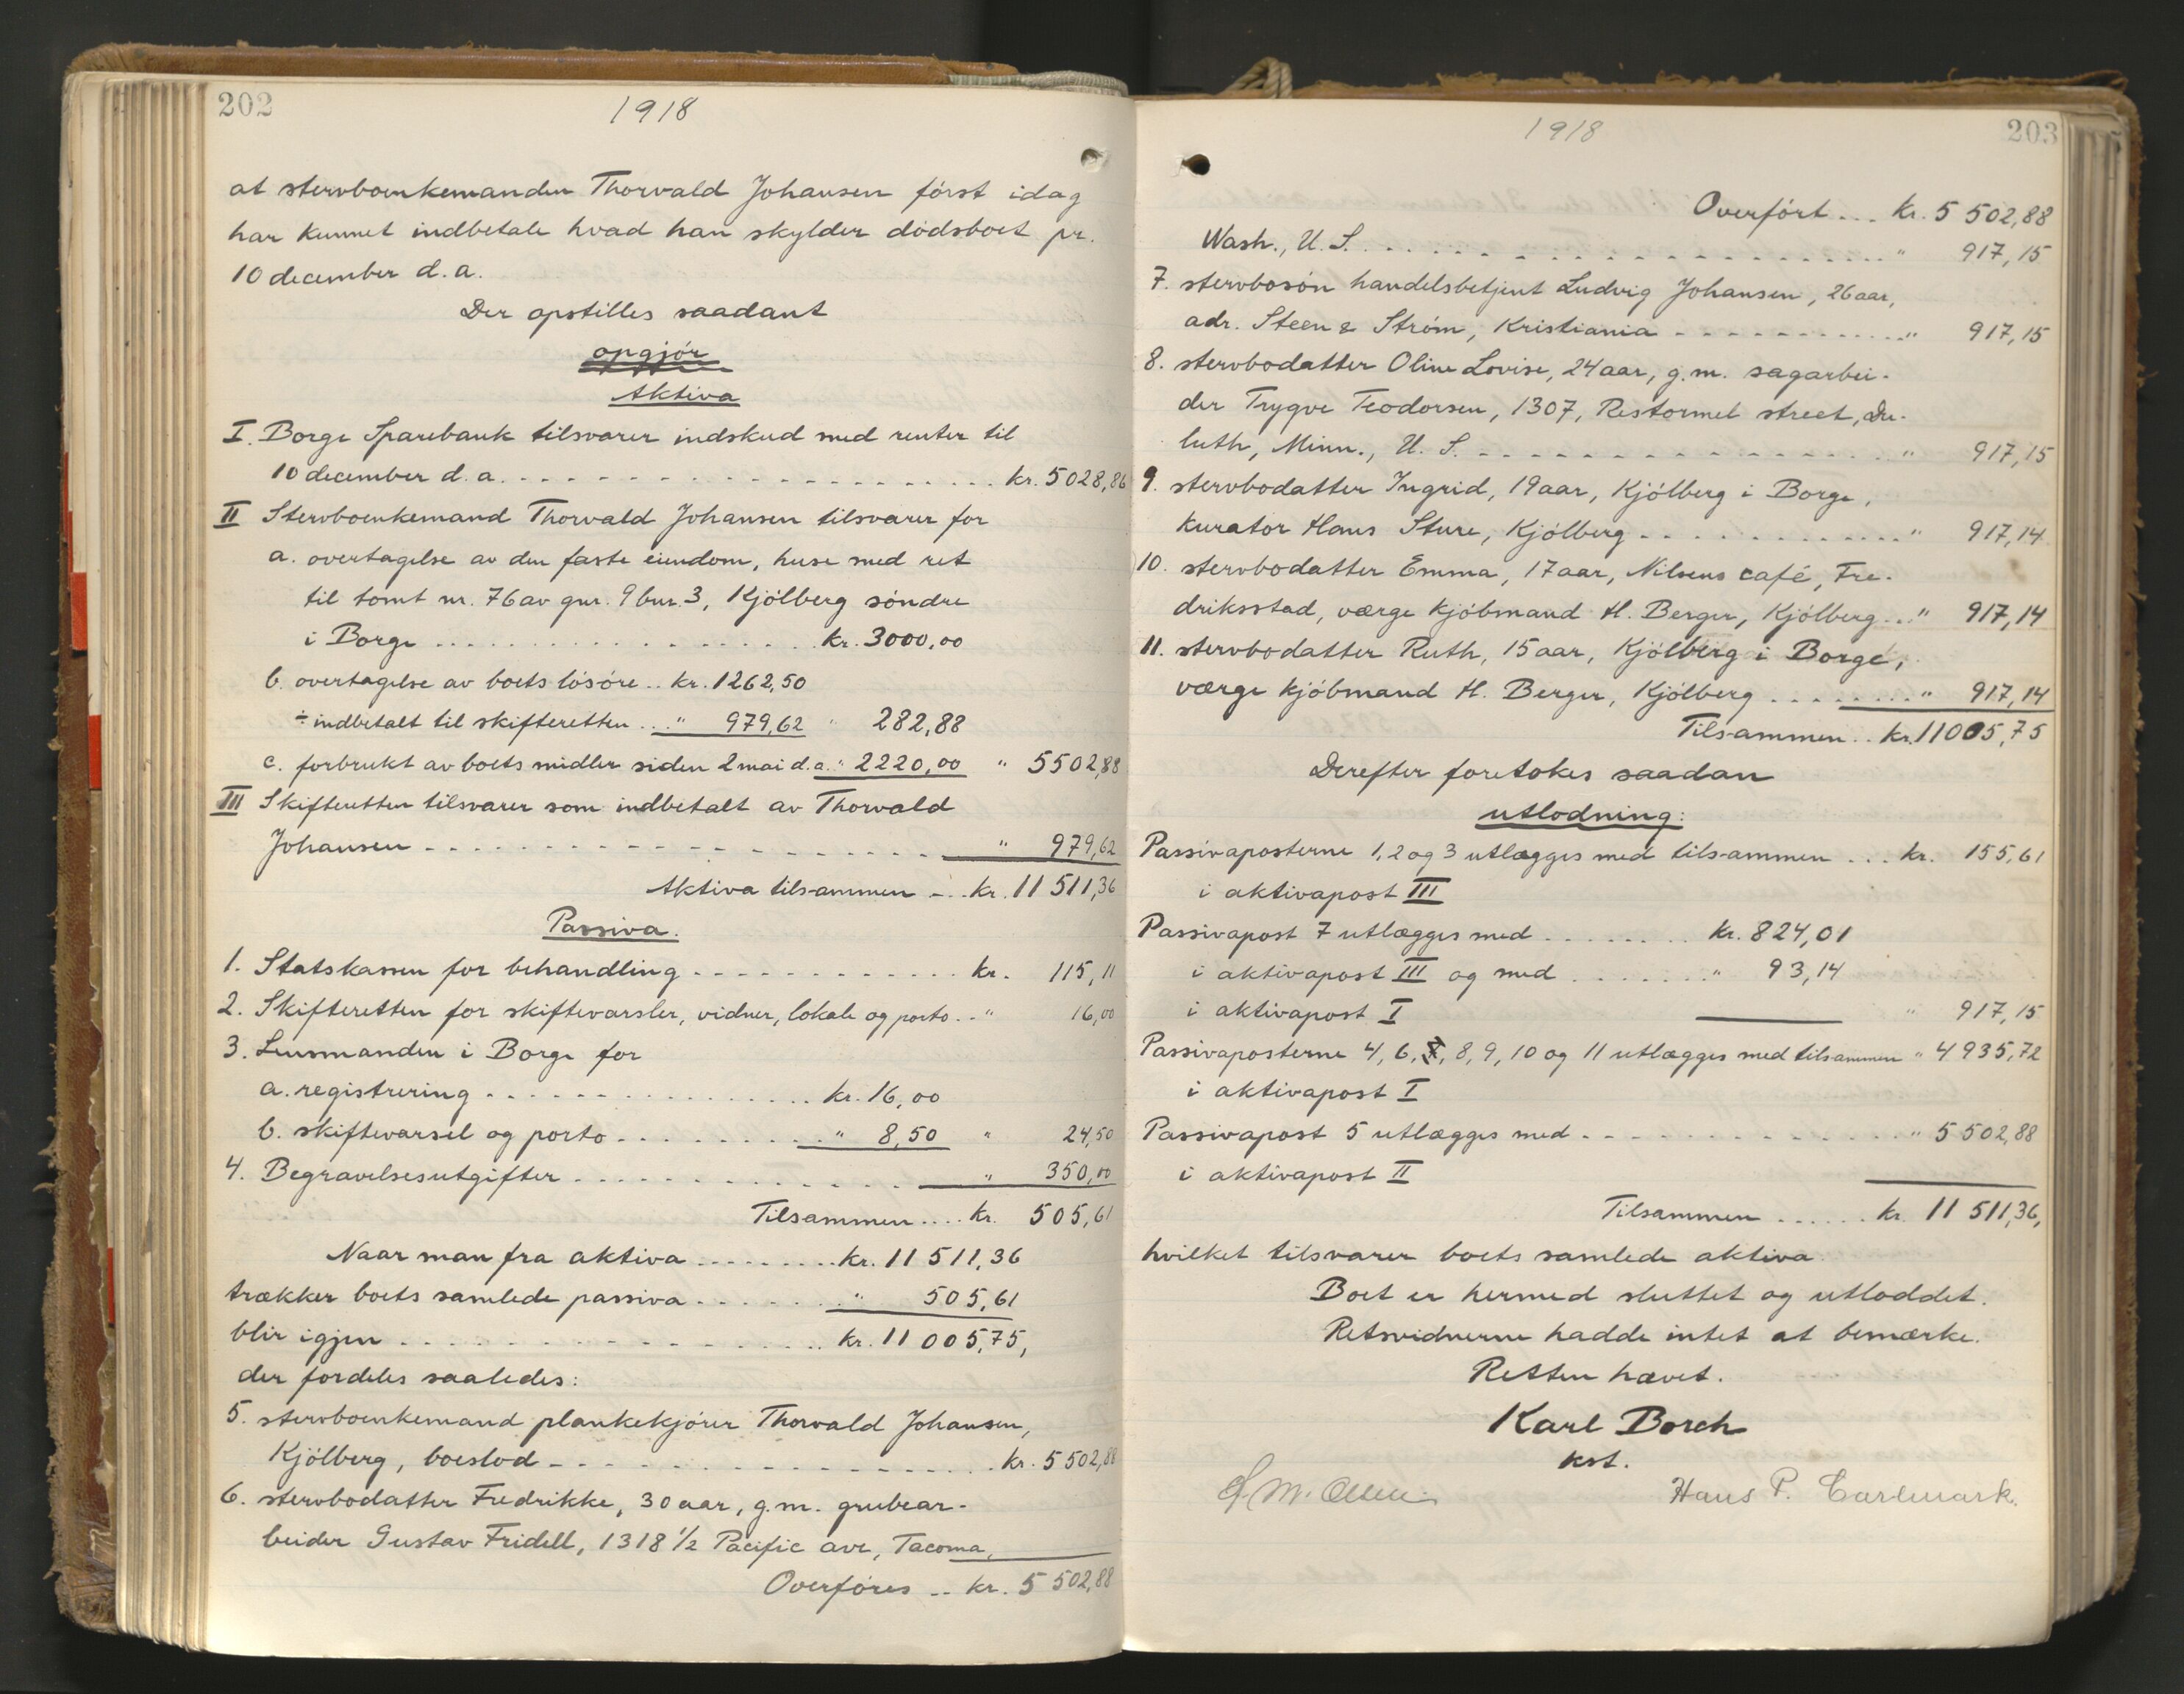 202
1918
at stervboenkemanden Thorvald Johansen först idag
har kunnet indbetale hvad han skylder dödsboet pr.
10 december d. a.
Der opstilles saadant
opgjör
Aktiva
I. Borge Sparebank tilsvarer indskud med renter til
10 december d. a. kr. 5028,86
II Stervboenkemand Thorvald Johansen tilsvarer for
a. overtagelse av den faste eiendom, huse med ret
til tomt nr. 76 av gnr. 9 bnr. 3, Kjölberg söndre
i Borge kr. 3000,00
b. overtagelse av boets lösöre .. kr. 1262,50
÷ indbetalt til skifteretten ... " 979,62 " 282,88
c. forbrukt av boets midler siden 2 mai d. a. " 2220,00 " 5502,88
III Skifteretten tilsvarer som indbetalt av Thorvald
Johansen " 979,62
Aktiva tilsammen ... kr. 11 511,36
Passiva.
1. Statskassen for behandling kr. 115,11
2. Skifteretten for skiftevarsler, vidner, lokale og porto .. " 16,00
3. Lensmanden i Borge for
a. registrering kr. 16,00
b. skiftevarsel og porto " 8,50 " 24,50
4. Begravelsesutgifter " 350,00
Tilsammen .... kr. 505,61
Naar man fra aktiva kr. 11 511,36
trækker boets samlede passiva " 505,61
blir igjen kr. 11 005,75,
der fordeles saaledes:
5. stervboenkemand plankekjörer Thorvald Johansen,
Kjölberg, boeslod kr. 5 502,88
6. stervbodatter Fredrikke, 30 aar, g. m. grubear-
beider Gustav Fridell, 1318 1/2 Pacific ave, Tacoma,
Overföres .. kr. 5 502,88
1918
203
Overfört ... kr. 5 502,88
Wash., U. S. " 917,15
7. stervbosön handelsbetjent Ludvig Johansen, 26 aar,
adr. Steen & Ström, Kristiania " 917,15
8. stervbodatter Oline Lovise, 24 aar, g. m. sagarbei-
der Trygve Teodorsen, 1307, Restormel street, Du-
luth, Minn., U. S. " 917,15
9. stervbodatter Ingrid, 19 aar, Kjölberg i Borge,
kurator Hans Sture, Kjölberg " 917,14
10. stervbodatter Emma, 17 aar, Nilsens café, Fre-
driksstad, værge kjöbmand H. Berger, Kjölberg .. " 917,14
11. stervbodatter Ruth, 15 aar, Kjölberg i Borge,
værge kjöbmand H. Berger, Kjölberg " 917,14
Tilsammen .. kr. 11005,75
Derefter foretokes saadan
utlodning:
Passivaposterne 1, 2 og 3 utlægges med tilsammen ... kr. 155,61
i aktivapost III
Passivapost 7 utlægges med kr. 824,01
i aktivapost III og med " 93,14
i aktivapost I " 917,15
Passivaposterne 4, 6, 7, 8, 9, 10 og 11 utlægges med tilsammen " 4935,72
i aktivapost I
Passivapost 5 utlægges med " 5 502,88
i aktivapost II
Tilsammen kr. 11 511,36,
hvilket tilsvarer boets samlede aktiva.
Boet er hermed sluttet og utloddet.
Retsvidnerne hadde intet at bemærke.
Retten hævet.
Karl Borch
kst.
Hans P. Carlmark.